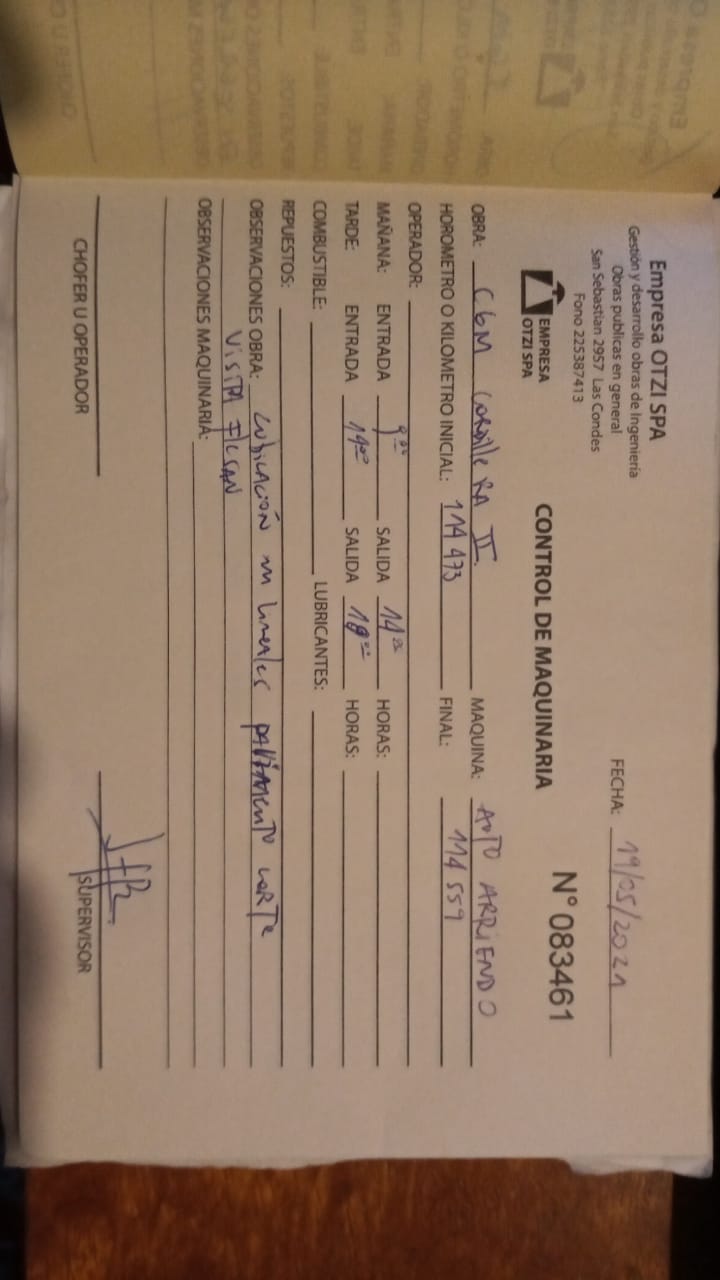 Empresa OTZI SPA
Gestión y desarrollo obras de Ingeniería
Obras publicas en general
San Sebastian 2957 Las Condes
Fono 225387413
EMPRESA
OTZI SPA
FECHA: 19/05/2021
N° 083461
CONTROL DE MAQUINARIA
OBRA: CGM CordilleRA II. MAQUINA: AUTO ARRIENDO
HOROMETRO O KILOMETRO INICIAL: 114 473 FINAL: 114 559
OPERADOR:
MAÑANA: ENTRADA 9⁰⁰ SALIDA 14⁰⁰ HORAS:
TARDE: ENTRADA 14⁰⁰ SALIDA 18⁰⁰ HORAS:
COMBUSTIBLE: LUBRICANTES:
REPUESTOS:
OBSERVACIONES OBRA: CUBICACIÓN m lineales PAVIMENTO CORTE
VISITA
OBSERVACIONES MAQUINARIA:
CHOFER U OPERADOR
SUPERVISOR